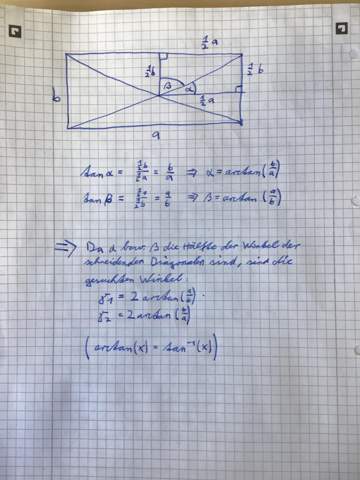 ½ a
½ b
β α
½ b
½ a
b
a
tan α = ½b/½a = b/a ⇒ α = arctan(b/a)
tan β = ½a/½b = a/b ⇒ β = arctan(a/b)
⇒ Da α bzw. β die Hälfte der Winkel der
schneidenden Diagonalen sind, sind die
gesuchten Winkel:
γ₁ = 2 arctan(a/b).
γ₂ = 2 arctan(b/a)
(arctan(x) = tan⁻¹(x))